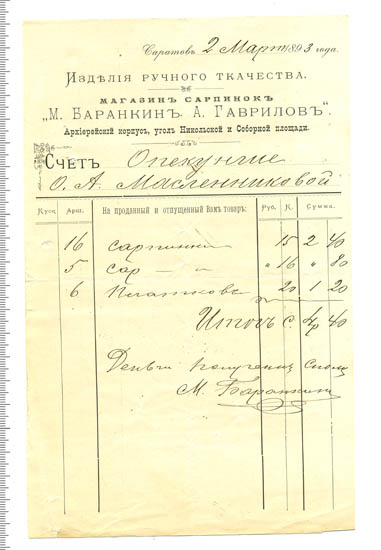 Саратовъ 2 Март 1893 года.
Издѣлія ручного ткачества.
МАГАЗИНЪ САРПИНОКЪ
„М. Баранкинъ. А. Гавриловъ".
Архіерейскій корпусъ, уголъ Никольской и Соборной площади.
Счетъ Опекунше
О. А. Масленниковой
Куск. Арш. На проданный и отпущенный Вамъ товаръ: Руб. К. Сумма.
16 сарпинки 15 2 40
5 сар — „ — „ 16 „ 80
6 платковъ 20 1 20
Итого С. 4р 40
Деньги получены сполна
М. Баранкинъ